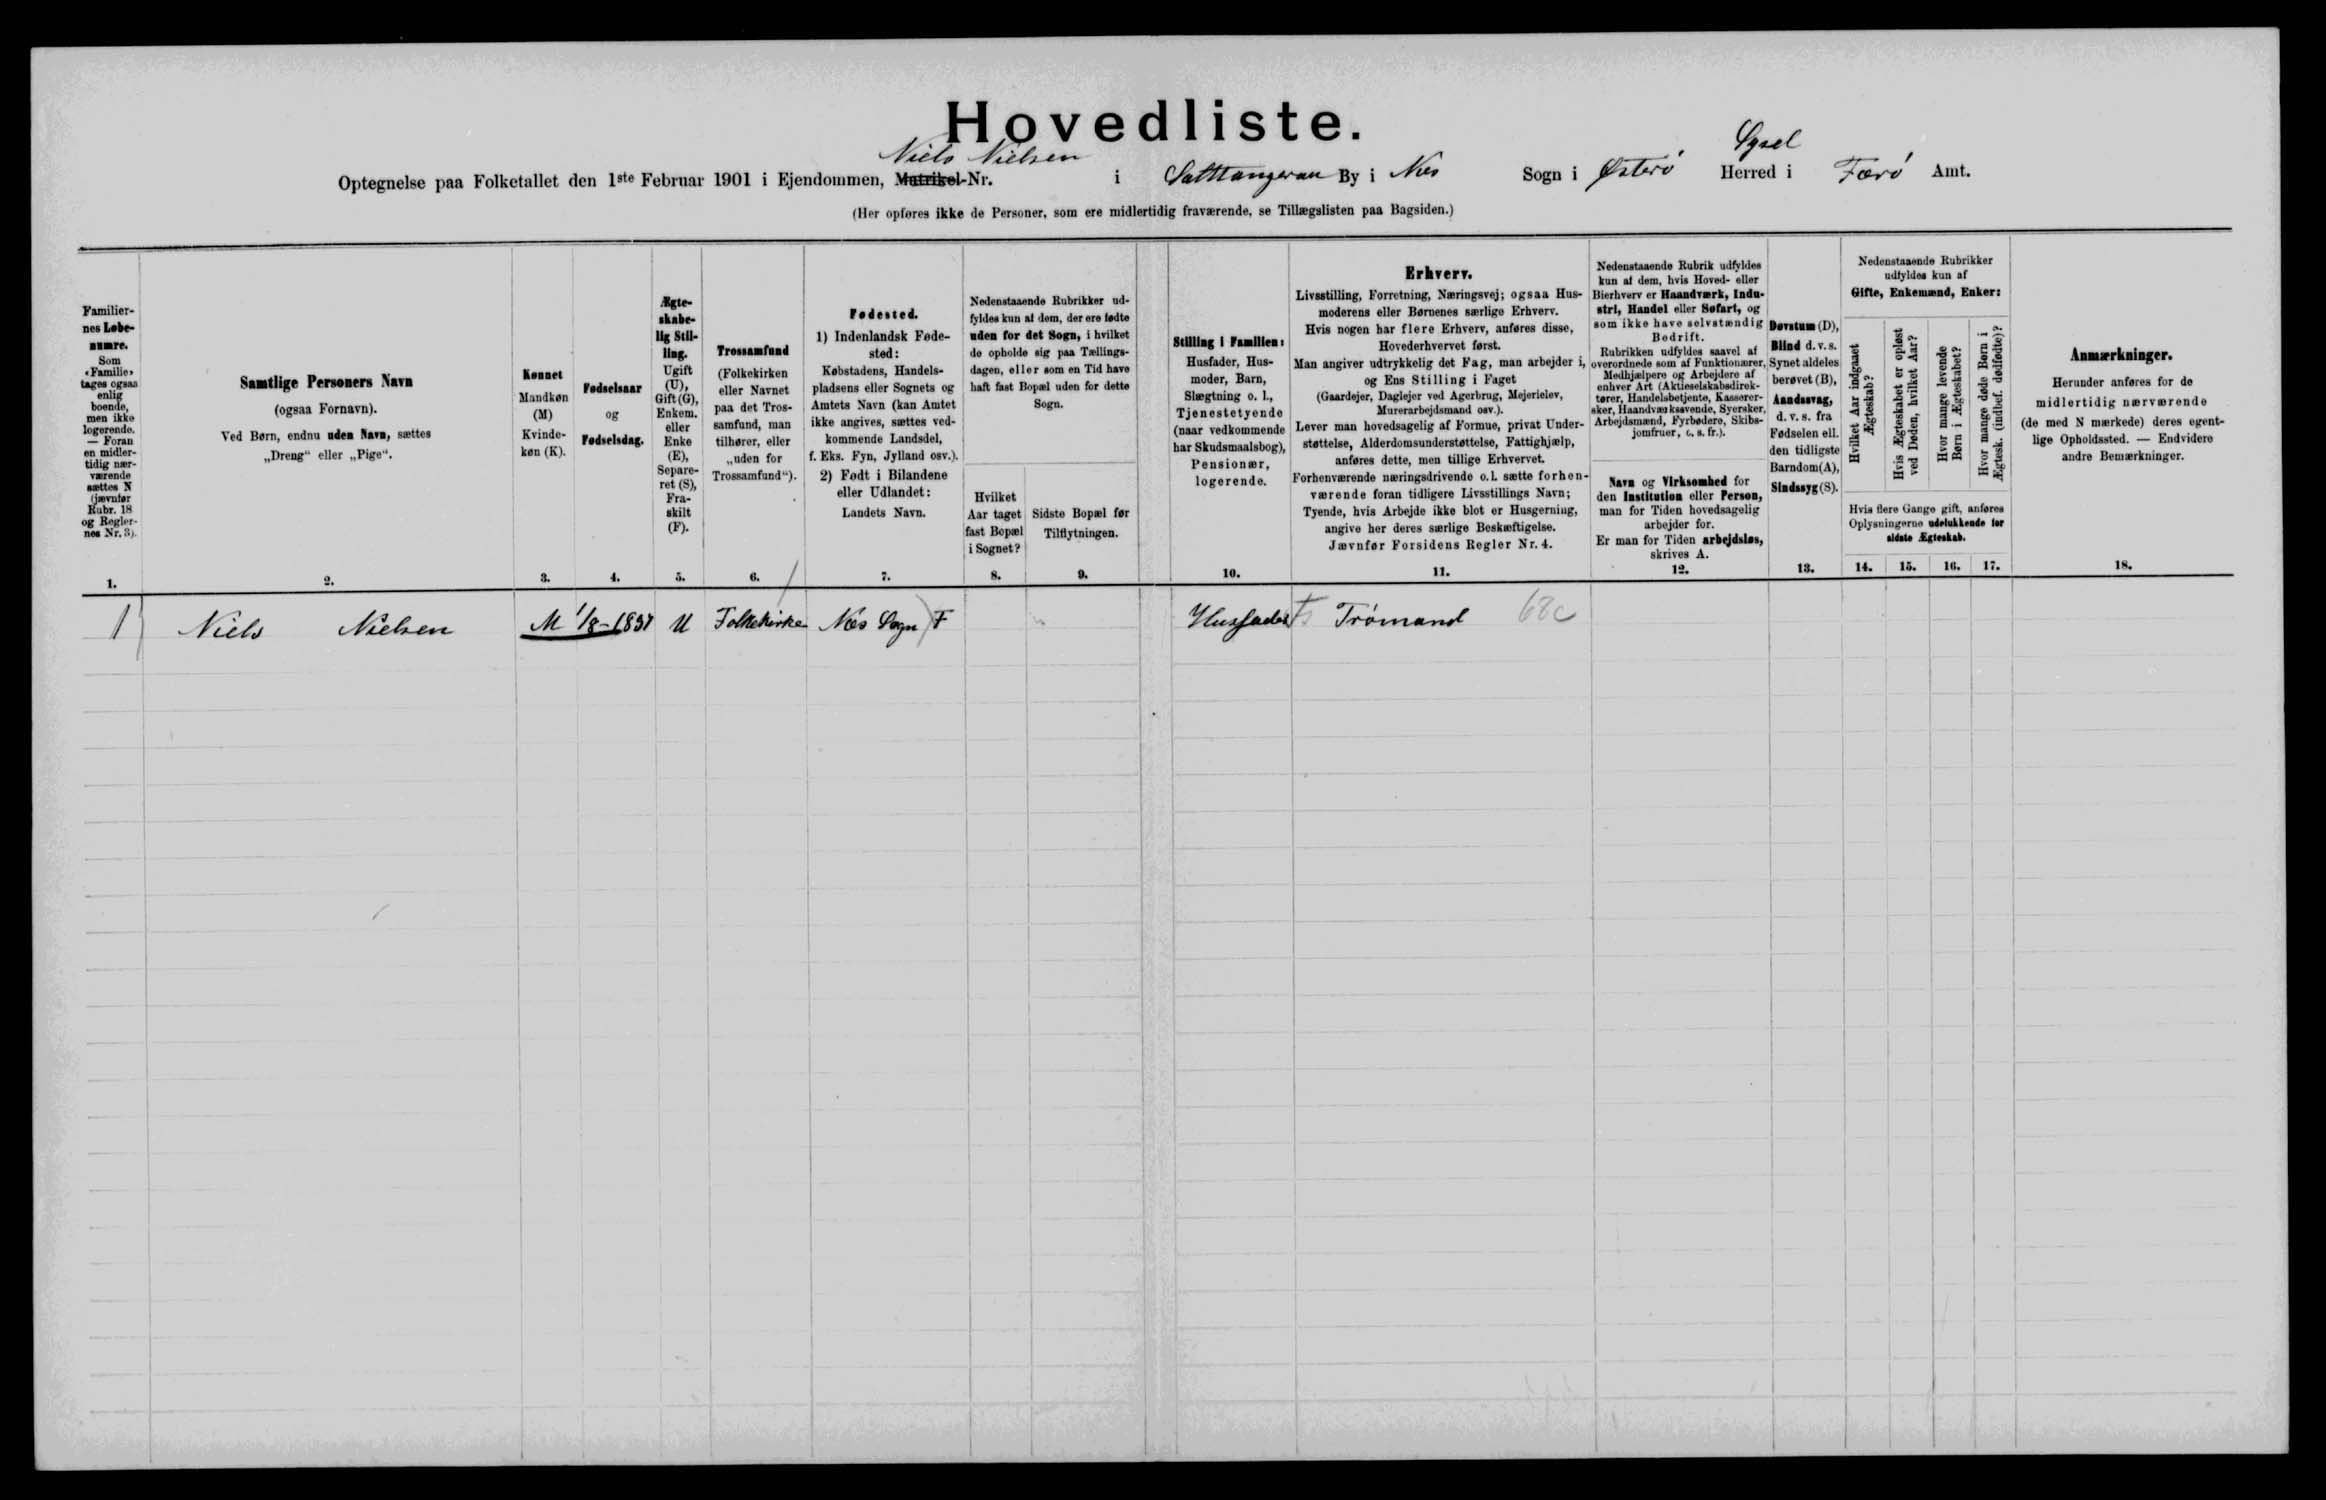 Hovedliste.
Niels Nielsen
Sysel
Optegnelse paa Folketallet den 1ste Februar 1901 i Ejendommen, Matrikel-Nr. i By i Nes Sogn i Østerö Herred i Færö Amt.
(Her opføres ikke de Personer, som ere midlertidig fraværende, se Tillægslisten paa Bagsiden.)
Familier-
nes Løbe-
numre.
Som
«Familie»
tages ogsaa
enlig
boende,
men ikke
logerende.
— Foran
en midler-
tidig nær-
værende
sættes N
(jævnfør
Rubr. 18
og Regler-
nes Nr. 3).
1.
Samtlige Personers Navn
(ogsaa Fornavn).
Ved Børn, endnu uden Navn, sættes
„Dreng“ eller „Pige“.
2.
Kønnet
Mandkøn
(M)
Kvinde-
køn (K).
3.
Fødselsaar
og
Fødselsdag.
4.
Ægte-
skabe-
lig Stil-
ling.
Ugift
(U),
Gift (G),
Enkem.
eller
Enke
(E),
Separe-
ret (S),
Fra-
skilt
(F).
5.
Trossamfund
(Folkekirken
eller Navnet
paa det Tros-
samfund, man
tilhører, eller
„uden for
Trossamfund“).
6.
Fødested.
1) Indenlandsk Føde-
sted:
Købstadens, Handels-
pladsens eller Sognets og
Amtets Navn (kan Amtet
ikke angives, sættes ved-
kommende Landsdel,
f. Eks. Fyn, Jylland osv.).
2) Født i Bilandene
eller Udlandet:
Landets Navn.
7.
Nedenstaaende Rubrikker ud-
fyldes kun af dem, der ere fødte
uden for det Sogn, i hvilket
de opholde sig paa Tællings-
dagen, eller som en Tid have
haft fast Bopæl uden for dette
Sogn.
Hvilket
Aar taget
fast Bopæl
i Sognet?
8.
Sidste Bopæl før
Tilflytningen.
9.
Stilling i Familien:
Husfader, Hus-
moder, Barn,
Slægtning o. l.,
Tjenestetyende
(naar vedkommende
har Skudsmaalsbog),
Pensionær,
logerende.
10.
Erhverv.
Livsstilling, Forretning, Næringsvej; ogsaa Hus-
moderens eller Børnenes særlige Erhverv.
Hvis nogen har flere Erhverv, anføres disse,
Hovederhvervet først.
Man angiver udtrykkelig det Fag, man arbejder i,
og Ens Stilling i Faget
(Gaardejer, Daglejer ved Agerbrug, Mejerielev,
Murerarbejdsmand osv.).
Lever man hovedsagelig af Formue, privat Under-
støttelse, Alderdomsunderstøttelse, Fattighjælp,
anføres dette, men tillige Erhvervet.
Forhenværende næringsdrivende o. l. sætte forhen-
værende foran tidligere Livsstillings Navn;
Tyende, hvis Arbejde ikke blot er Husgerning,
angive her deres særlige Beskæftigelse.
Jævnfør Forsidens Regler Nr. 4.
11.
Nedenstaaende Rubrik udfyldes
kun af dem, hvis Hoved- eller
Bierhverv er Haandværk, Indu-
stri, Handel eller Søfart, og
som ikke have selvstændig
Bedrift.
Rubrikken udfyldes saavel af
overordnede som af Funktionærer,
Medhjælpere og Arbejdere af
enhver Art (Aktieselskabsdirek-
tører, Handelsbetjente, Kasserer-
sker, Haandværkssvende, Syersker,
Arbejdsmænd, Fyrbødere, Skibs-
jomfruer, o. s. fr.).
Navn og Virksomhed for
den Institution eller Person,
man for Tiden hovedsagelig
arbejder for.
Er man for Tiden arbejdsløs,
skrives A.
12.
Døvstum (D),
Blind d. v. s.
Synet aldeles
berøvet (B),
Aandssvag,
d. v. s. fra
Fødselen ell.
den tidligste
Barndom (A),
Sindssyg (S).
13.
Nedenstaaende Rubrikker
udfyldes kun af
Gifte, Enkemænd, Enker:
Hvilket Aar indgaaet
Ægteskab?
Hvis Ægteskabet er opløst
ved Døden, hvilket Aar?
Hvor mange levende
Børn i Ægteskabet?
Hvor mange døde Børn i
Ægtesk. (indbef. dødfødte)?
Hvis flere Gange gift, anføres
Oplysningerne udelukkende for
sidste Ægteskab.
14. 15. 16. 17.
Anmærkninger.
Herunder anføres for de
midlertidig nærværende
(de med N mærkede) deres egent-
lige Opholdssted. — Endvidere
andre Bemærkninger.
18.
1 Niels Nielsen M 1/8-1837 U Folkekirke Nes Sogn F Husfader Trömand 68c